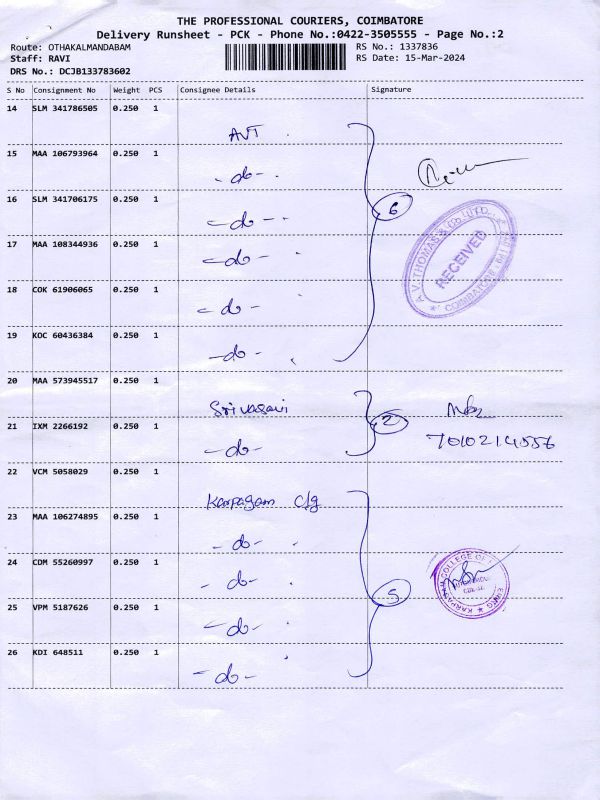 THE PROFESSIONAL COURIERS, COIMBATORE
Delivery Runsheet - PCK - Phone No.:0422-3505555 - Page No.:2
Route: OTHAKALMANDABAM RS No.: 1337836
Staff: RAVI RS Date: 15-Mar-2024
DRS No.: DCJB133783602
S No Consignment No Weight PCS Consignee Details Signature
14 SLM 341786505 0.250 1
AVT
15 MAA 106793964 0.250 1
-do-
16 SLM 341706175 0.250 1
6
-do-
17 MAA 108344936 0.250 1
A.V. THOMAS & CO LTD.,
RECEIVED
COIMBATORE
-do-
18 COK 61906065 0.250 1
-do-
19 KOC 60436384 0.250 1
-do-
20 MAA 573945517 0.250 1
Srivasavi
21 IXM 2266192 0.250 1
2
7010214556
-do-
22 VCM 5058029 0.250 1
Karpagam clg
23 MAA 106274895 0.250 1
-do-
24 CDM 55260997 0.250 1
KARPAGAM COLLEGE OF ENGG
-do-
5
25 VPM 5187626 0.250 1
-do-
26 KDI 648511 0.250 1
-do-